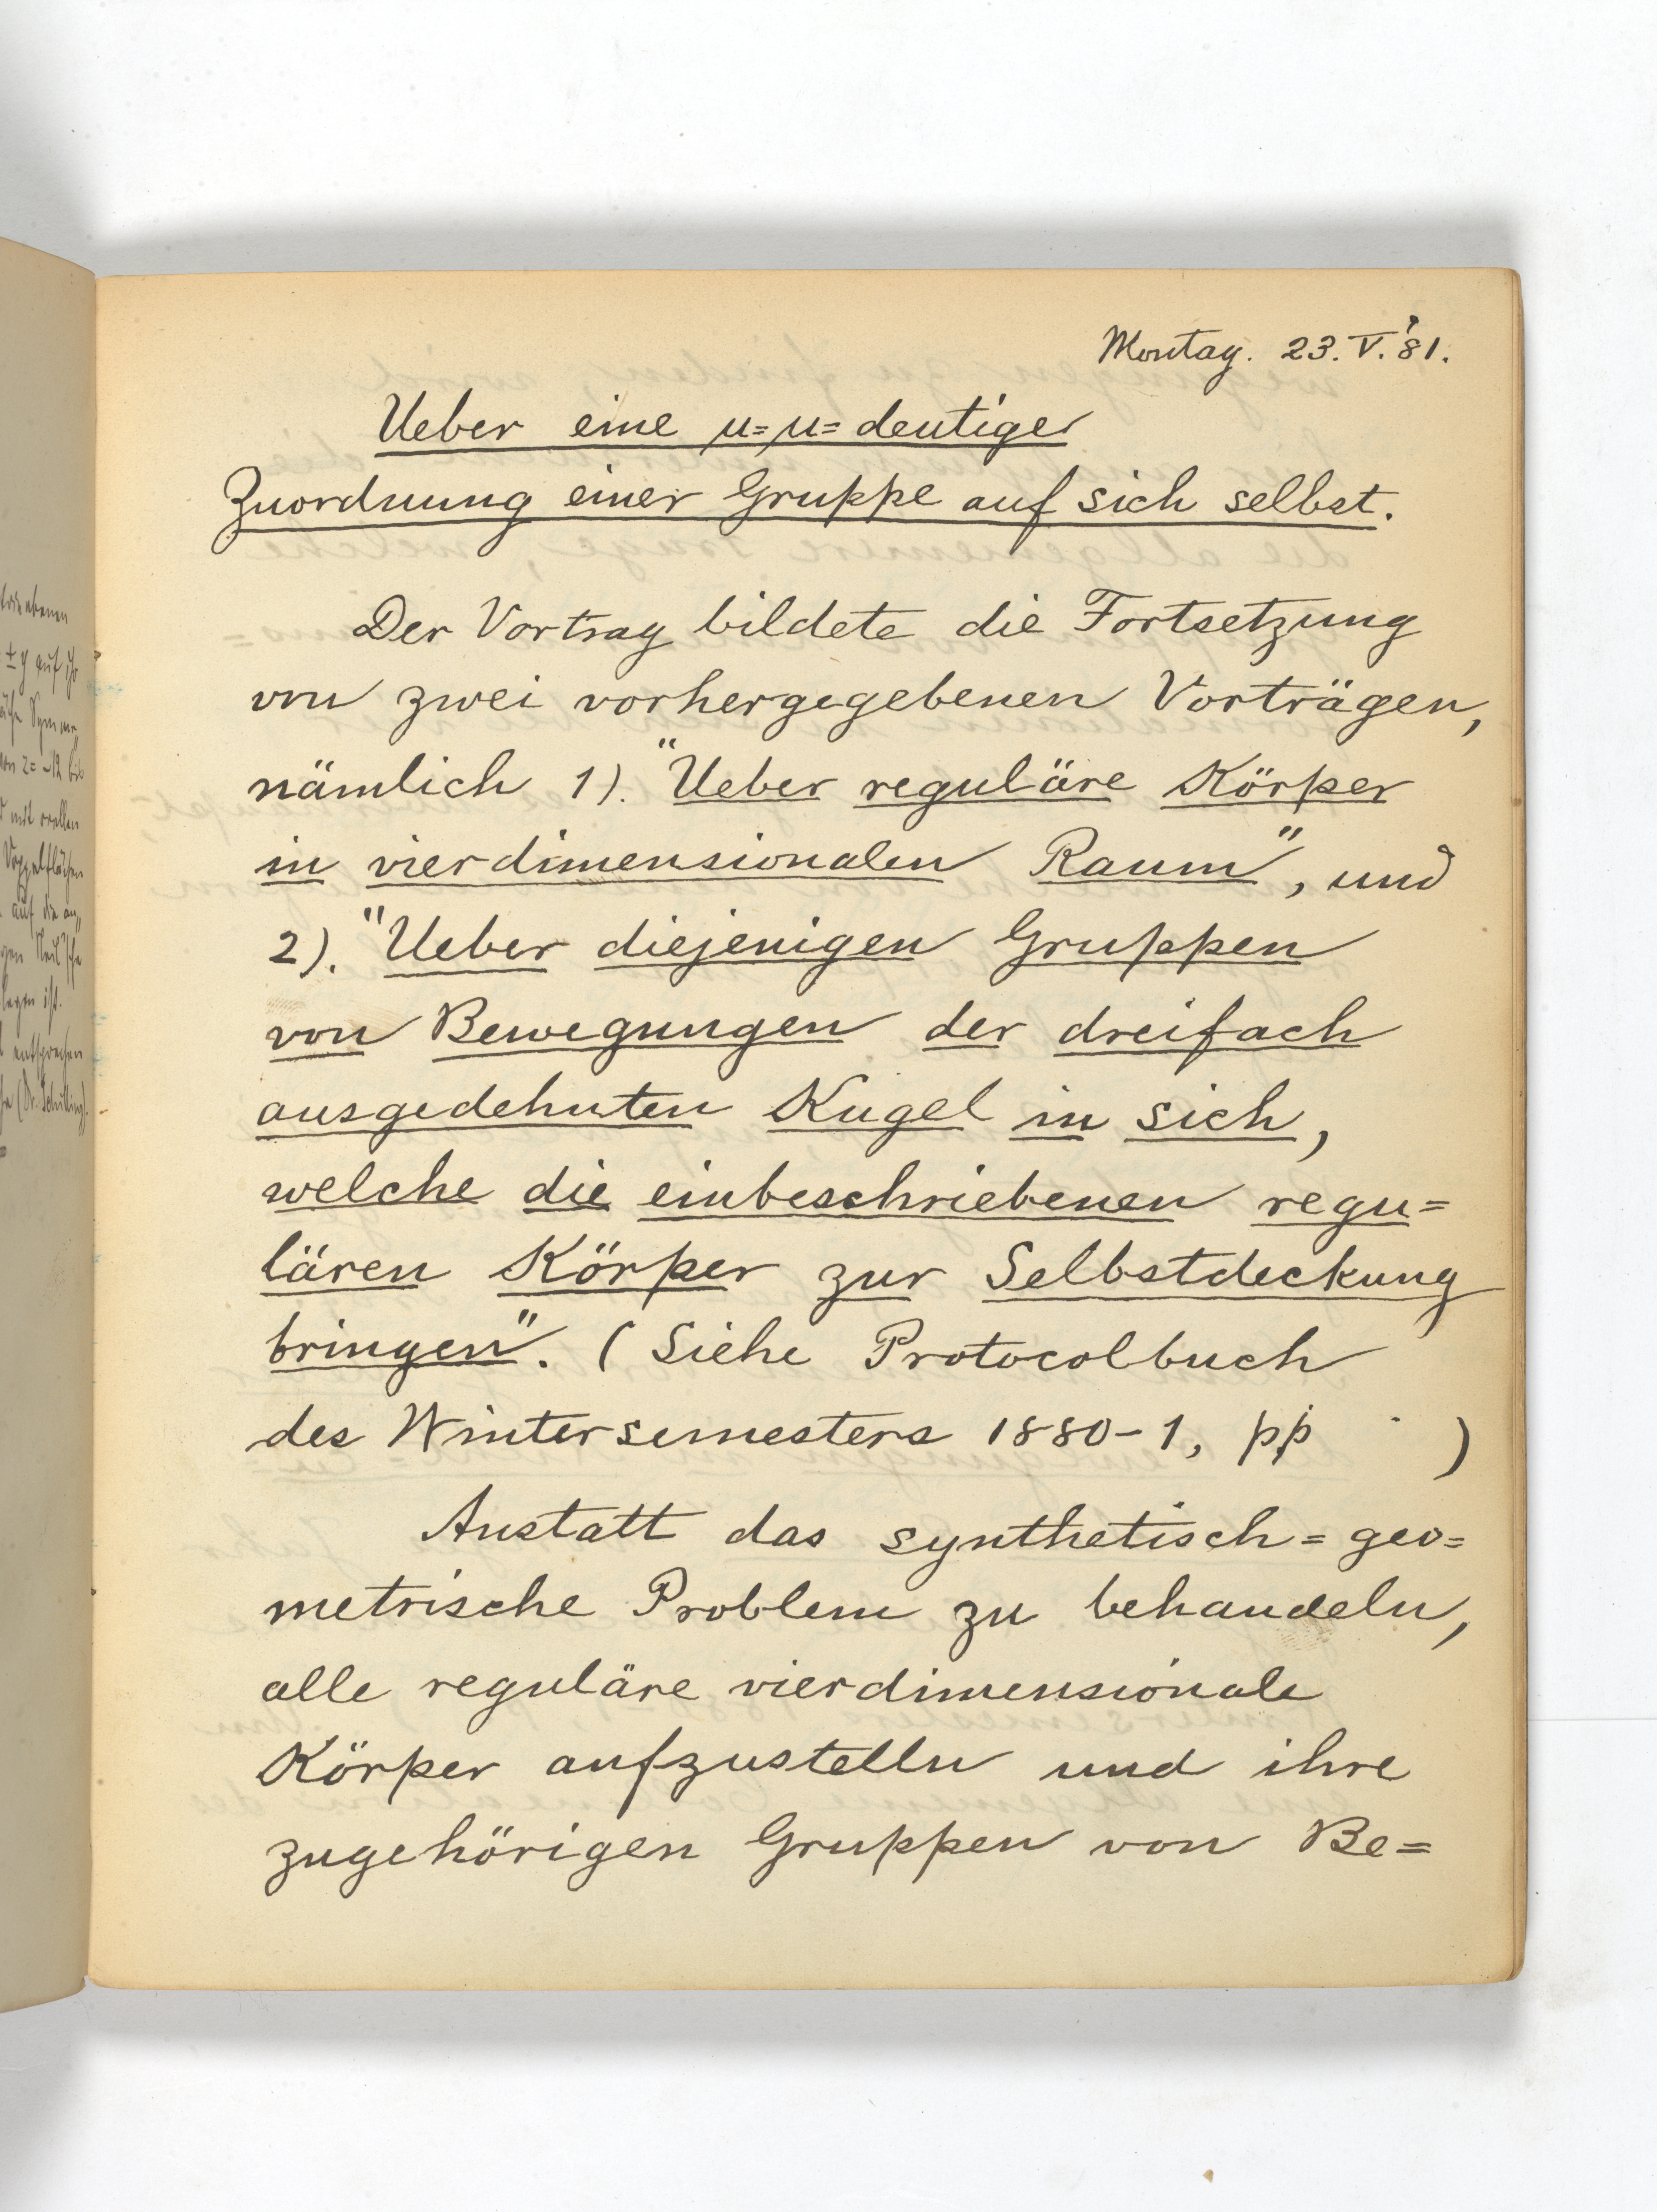 Montag. 23. V. '81.
Ueber eine μ=μ=deutige
Zuordnung einer Gruppe auf sich selbst.
Der Vortrag bildete die Fortsetzung
von zwei vorhergegebenen Vorträgen,
nämlich 1). "Ueber reguläre Körper
in vierdimensionalen Raum", und
2). "Ueber diejenigen Gruppen
von Bewegungen der dreifach
ausgedehnten Kugel in sich,
welche die einbeschriebenen regu=
lären Körper zur Selbstdeckung
bringen". (Siehe Protocolbuch
des Wintersemesters 1880-1, pp )
Anstatt das synthetisch=geo=
metrische Problem zu behandeln,
alle reguläre vierdimensionale
Körper aufzustelln und ihre
zugehörigen Gruppen von Be=